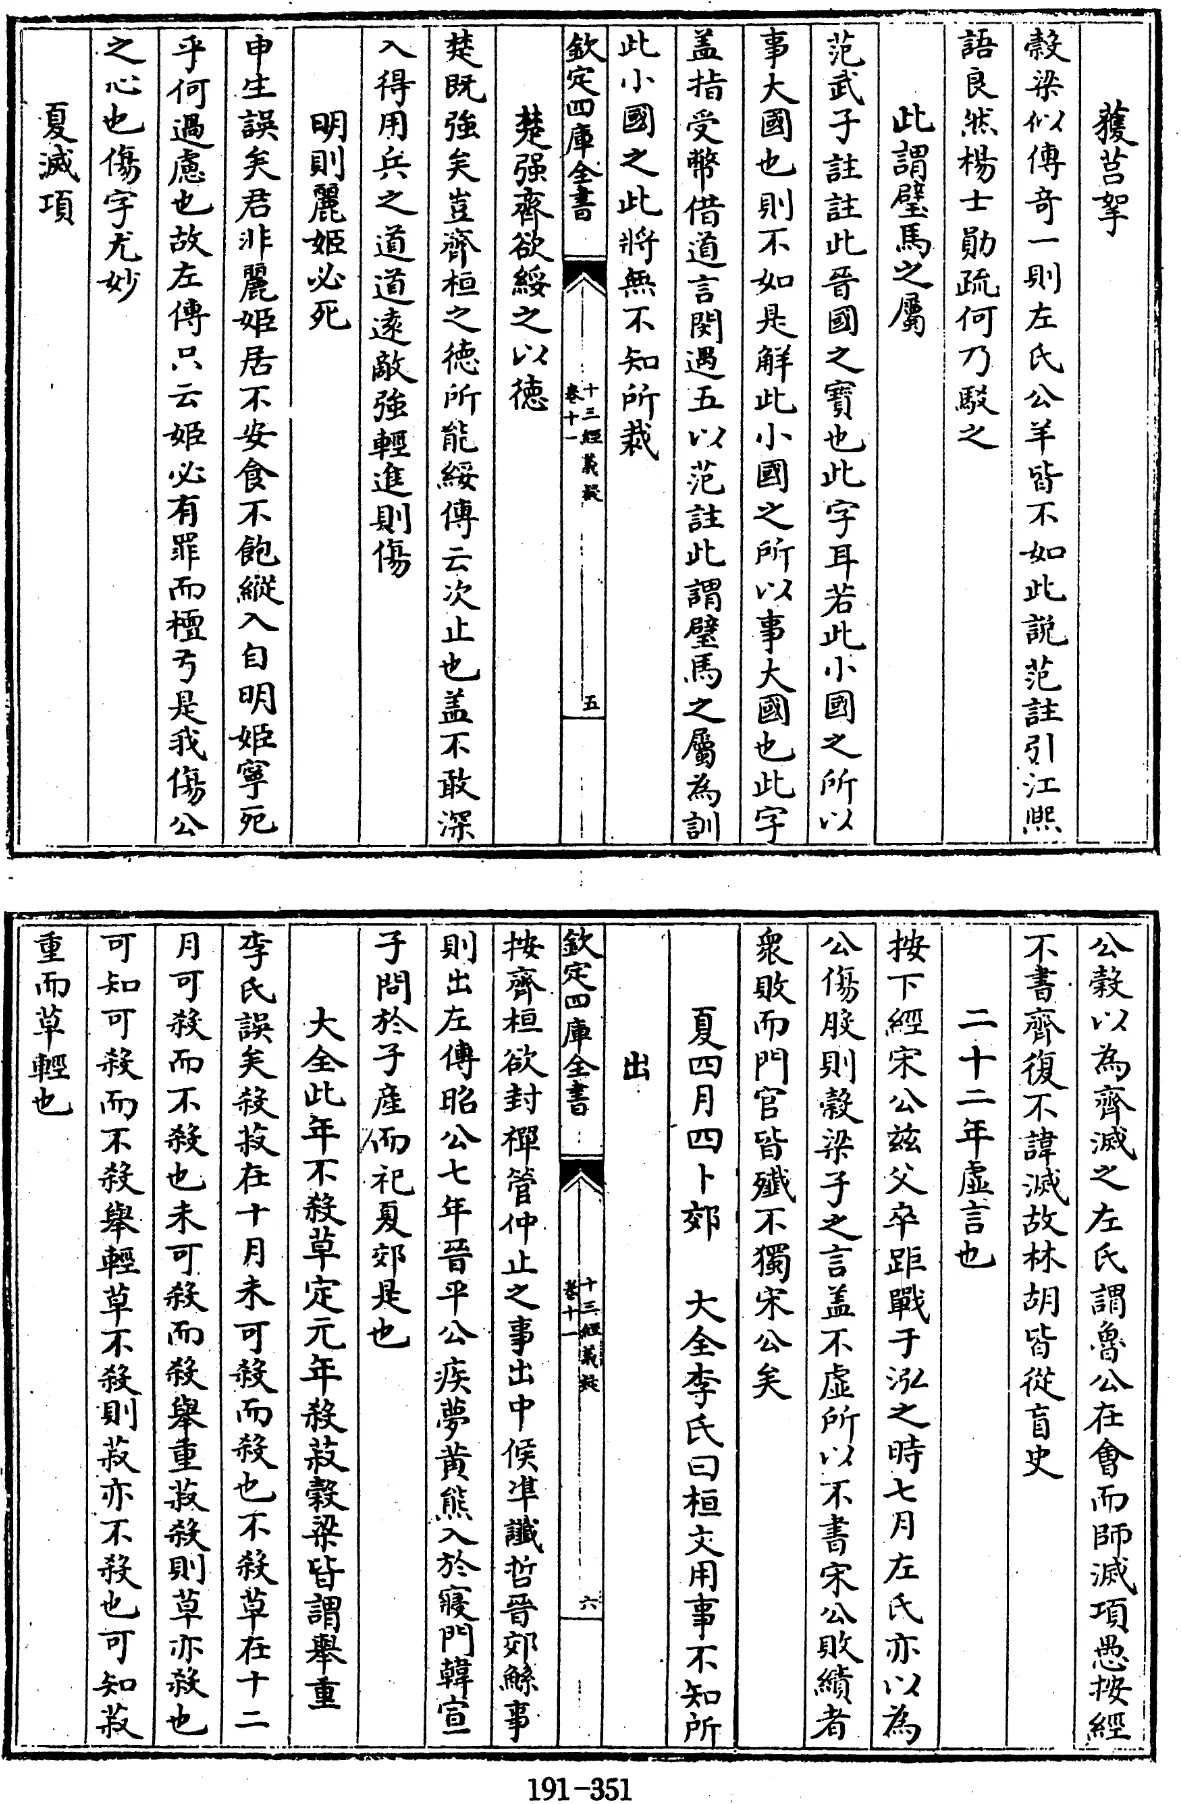 獲莒挐
穀梁似傳奇一則左氏公羊皆不如此說范註引江熙
語良然楊士勛疏何乃駁之
此謂璧馬之屬
范武子註註此晉國之寶也此字耳若此小國之所以
事大國也則不如是解此小國之所以事大國也此字
盖指受幣借道言閔遇五以范註此謂璧馬之屬為訓
此小國之此將無不知所裁
欽定四庫全書
十三經義疑
卷十一
五
楚强齊欲綏之以德
楚既強矣豈齊桓之德所能綏傳云次止也盖不敢深
入得用兵之道道遠敵強輕進則傷
明則麗姬必死
申生誤矣君非麗姬居不安食不飽縱入自明姬寧死
乎何過慮也故左傳只云姬必有罪而檀弓是我傷公
之心也傷字尤妙
夏滅項
公穀以為齊滅之左氏謂魯公在會而師滅項愚按經
不書齊復不諱滅故林胡皆從盲史
二十二年虛言也
按下經宋公兹父卒距戰于泓之時七月左氏亦以為
公傷股則穀梁子之言盖不虛所以不書宋公敗績者
衆敗而門官皆殲不獨宋公矣
夏四月四卜郊 大全李氏曰桓文用事不知所
出
欽定四庫全書
十三經義疑
卷十一
六
按齊桓欲封禪管仲止之事出中候準讖哲晉郊鯀事
則出左傳昭公七年晉平公疾夢黄熊入於寢門韓宣
子問於子產而祀夏郊是也
大全此年不殺草定元年殺菽穀梁皆謂舉重
李氏誤矣殺菽在十月未可殺而殺也不殺草在十二
月可殺而不殺也未可殺而殺舉重菽殺則草亦殺也
可知可殺而不殺舉輕草不殺則菽亦不殺也可知菽
重而草輕也
191-351